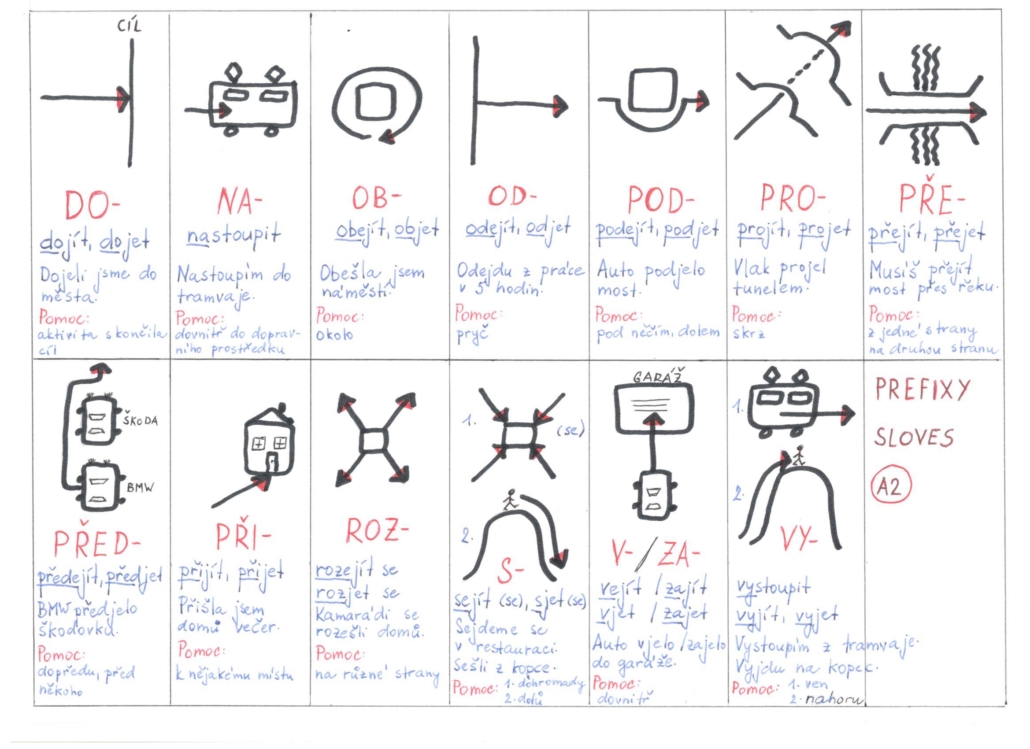 CÍL
DO-
dojít, dojet
Dojeli jsme do
města.
Pomoc:
aktivita skončila
cíl
NA-
nastoupit
Nastoupím do
tramvaje.
Pomoc:
dovnitř do doprav-
ního prostředku
OB-
obejít, objet
Obešla jsem
náměstí.
Pomoc:
okolo
OD-
odejít, odjet
Odejdu z práce
v 5 hodin.
Pomoc:
pryč
POD-
podejít, podjet
Auto podjelo
most.
Pomoc:
pod něčím, dolem
PRO-
projít, projet
Vlak projel
tunelem.
Pomoc:
skrz
PŘE-
přejít, přejet
Musíš přejít
most přes řeku.
Pomoc:
z jedné strany
na druhou stranu
ŠKODA
BMW
PŘED-
předejít, předjet
BMW předjelo
škodovku.
Pomoc:
dopředu, před
někoho
PŘI-
přijít, přijet
Přišla jsem
domů večer.
Pomoc:
k nějakému místu
ROZ-
rozejít se
rozjet se
Kamarádi se
rozešli domů.
Pomoc:
na různé strany
1.
(se)
2.
S-
sejít (se), sjet (se)
Sejdeme se
v restauraci.
Sešli z kopce.
Pomoc: 1. dohromady
2. dolů
GARÁŽ
V-/ZA-
vejít / zajít
vjet / zajet
Auto vjelo/zajelo
do garáže.
Pomoc:
dovnitř
1.
2.
VY-
vystoupit
vyjít, vyjet
Vystoupím z tramvaje.
Vyjdu na kopec.
Pomoc: 1. ven
2. nahoru
PREFIXY
SLOVES
A2